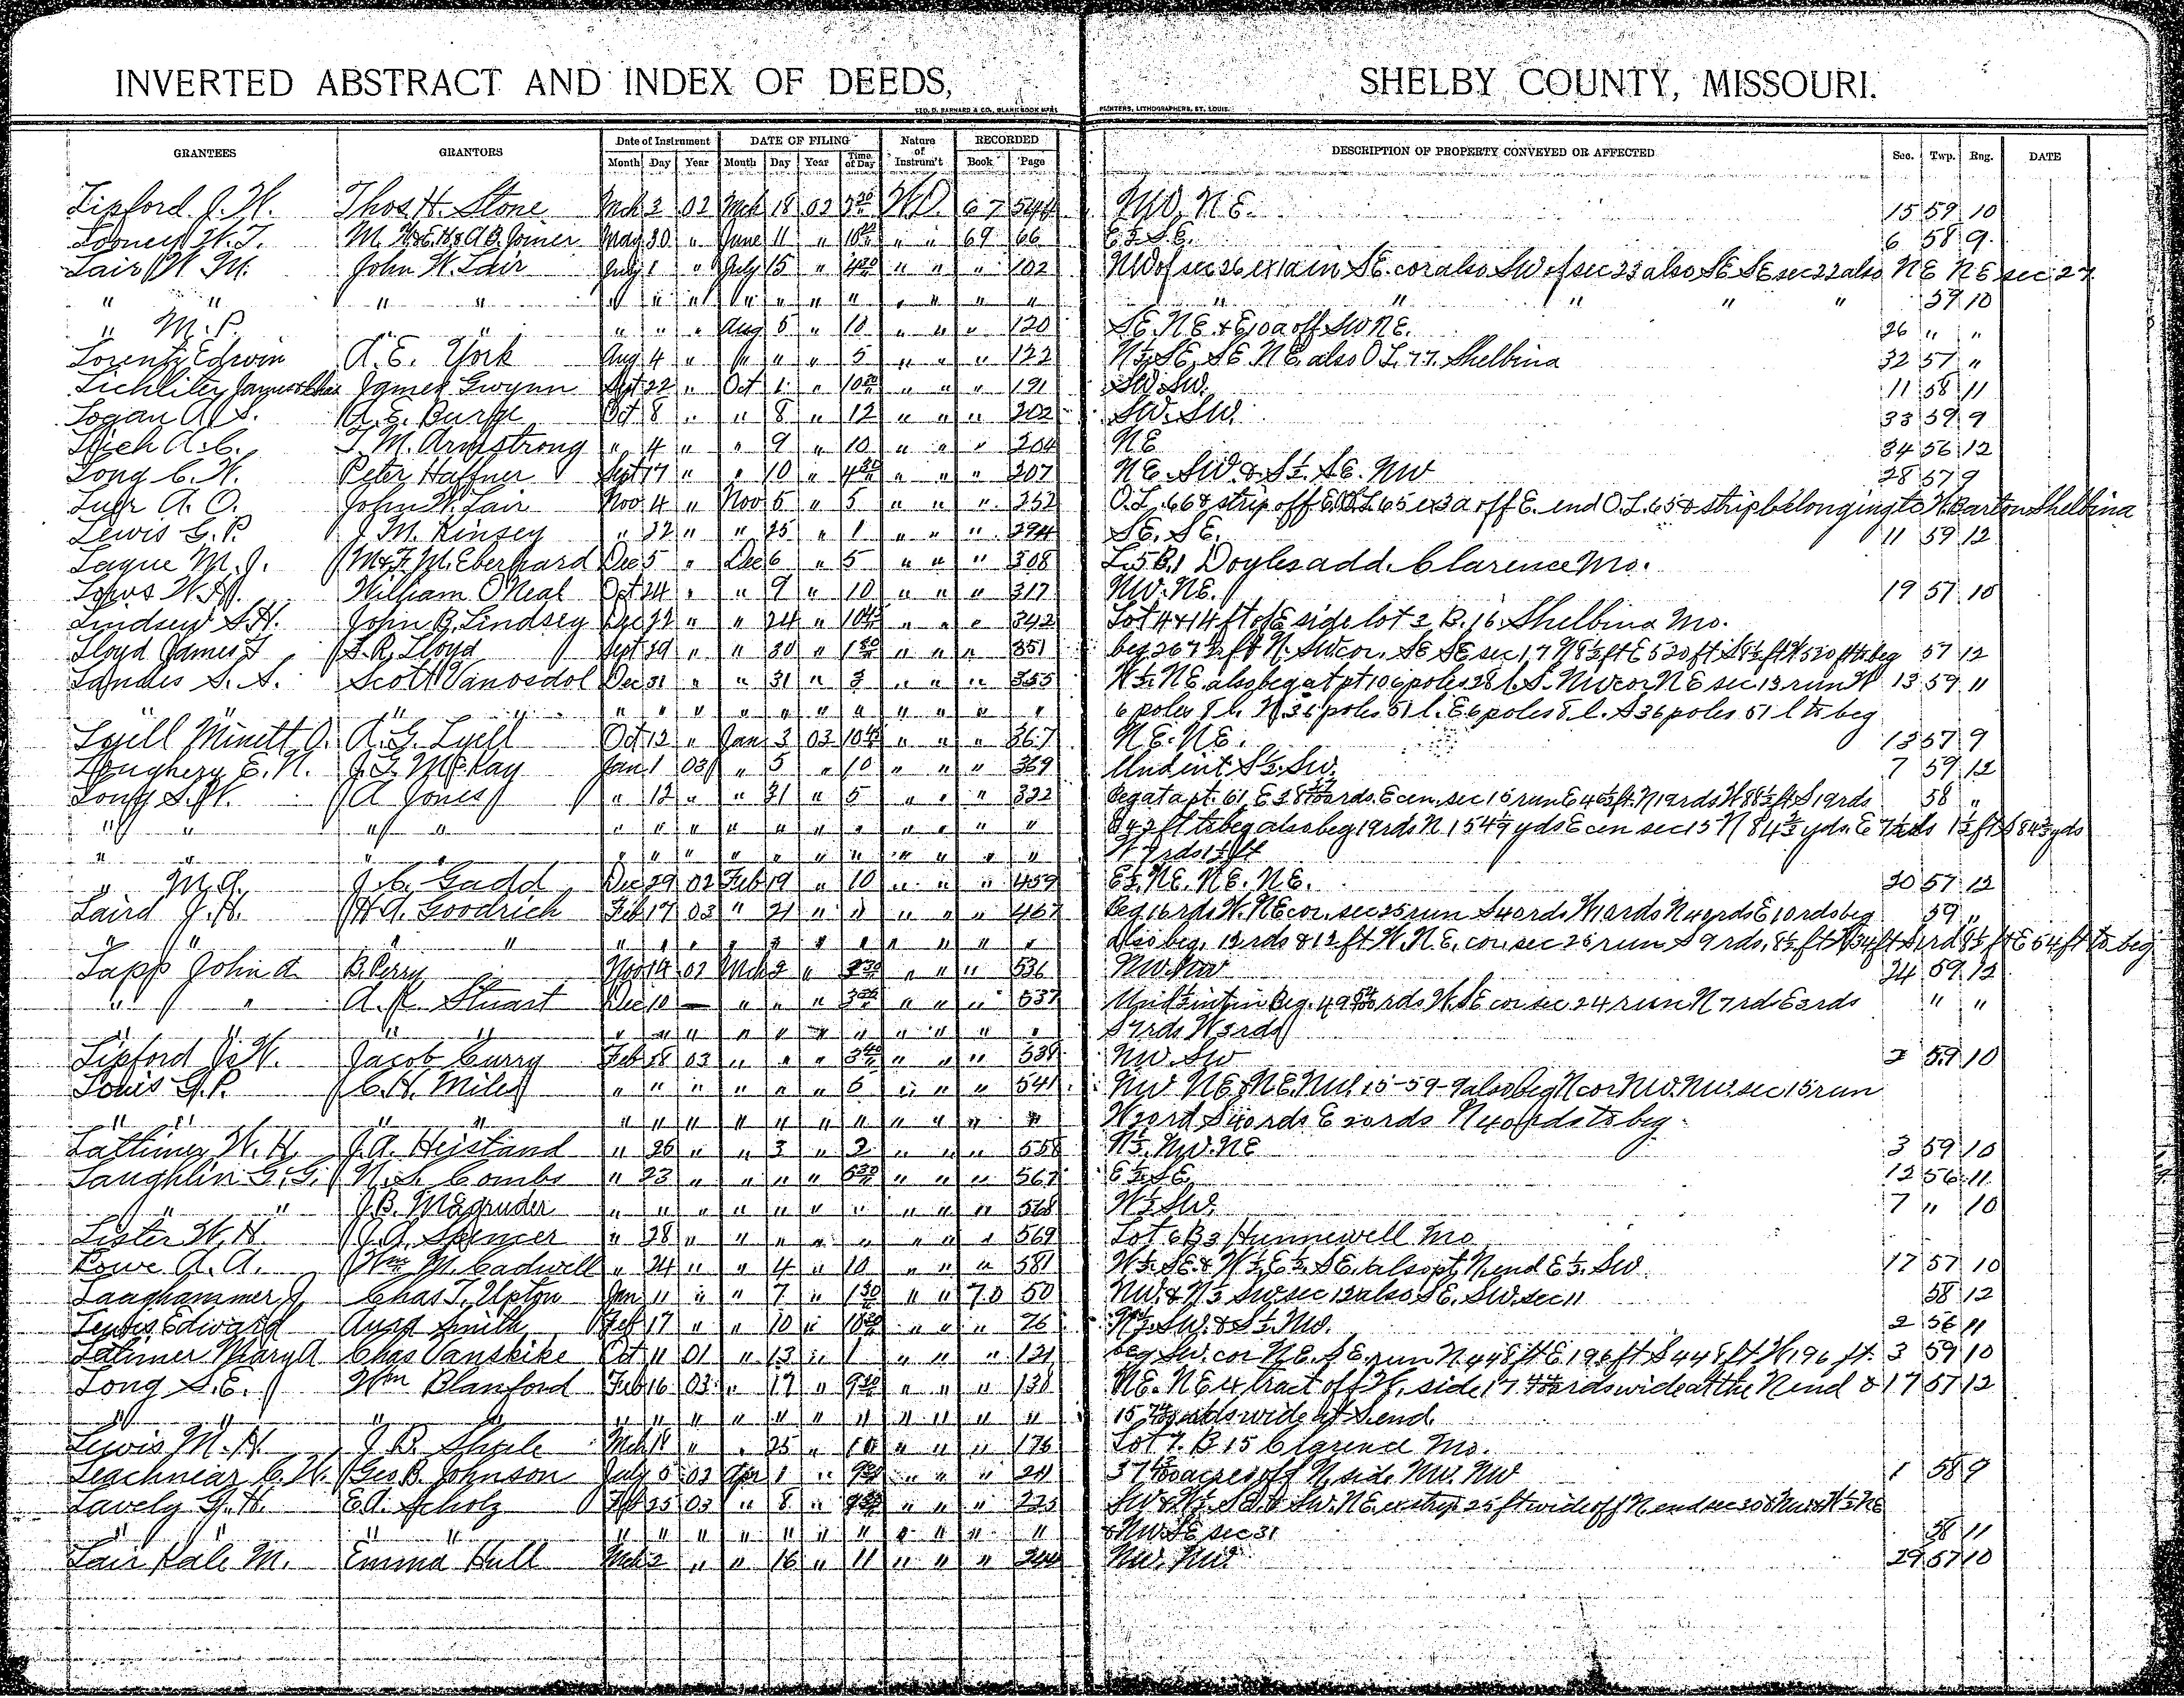 INVERTED ABSTRACT AND INDEX OF DEEDS, SHELBY COUNTY, MISSOURI.
GEO. D. BARNARD & CO., BLANK BOOK M'F'RS PRINTERS, LITHOGRAPHERS, ST. LOUIS.
GRANTEES GRANTORS Date of Instrument DATE OF FILING Nature of Instrum't RECORDED DESCRIPTION OF PROPERTY CONVEYED OR AFFECTED Sec. Twp. Rng. DATE
Month Day Year Month Day Year Time of Day Book Page
Lipford J. W. Thos H. Stone Mch 3 02 Mch 18 02 WD 67 544 NW, N E. 15 59 10
Looney W. T. Joiner May 30 " June 11 " " " 69 66 E ½ S E. 6 58 9
Lair W M. John W. Lair July 1 " July 15 " 4 30 " " " 102 NW of sec 26 ex 1a in S E. cor also SW of sec 23 also SE SE sec 22 also NE NE sec 27
" " " " " " " " " " " " " " " " " " " " 59 10
" M. P. " " " " " Aug 5 " 10 " " " 120 SE. NE & E 10 a off SW NE. 26 " "
Lorentz Edwin A. E. York Aug 4 " " " " 5 " " " 122 N ½ SE, SE NE also O L. 77. Shelbina 32 57 "
James Gwynn Sept 22 " Oct 1 " 10 " " " 191 SW SW. 11 58 11
Logan A. S. A. E. Burge Oct 8 " " 8 " 12 " " " 202 SW. SW. 33 59 9
A. C. T. M. Armstrong " 4 " " 9 " 10 " " " 204 NE 34 56 12
Long C. W. Peter Haffner Sept 17 " " 10 " 4 30 " " " 207 NE. SW & S ½ SE. NW 28 57 9
A. O. John W. Lair Nov 4 " Nov 5 " 5 " " " 252 O.L. 66 & strip off E. O.L 65 ex 3a off E. end O.L. 65 & strip belonging to W. Barton Shelbina
Lewis G. P. J. M. Kinsey " 22 " " 25 " 1 " " " 294 SE. SE. 11 59 12
Lague M. J. M & F. M. Eberhard Dec 5 " Dec 6 " 5 " " " 308 L. 5 B. 1 Doyles add. Clarence Mo.
William ONeal Oct 24 " " 9 " 10 " " " 317 NW. NE. 19 57 10
Lindsey S. H. John B. Lindsey Dec 22 " " 24 " " " " 342 Lot 4 & 14 ft off E side lot 3 B. 16. Shelbina Mo.
Lloyd James T L. R. Lloyd Sept 29 " " 30 " " " " 351 beg 267 ½ ft N. SW cor. SE SE sec 17 N 8 ½ ft E 520 ft S 8 ½ ft W 520 ft to beg 57 12
Landes S. S. Scott Vanosdol Dec 31 " " 31 " 3 " " " 355 W ½ NE also beg at pt 106 poles 28 l. S. NW cor NE sec 13 run W 13 59 11
" " " " " " " " " " " " " " " 6 poles 8 l. N 36 poles 51 l. E 6 poles 8 l. S 36 poles 51 l to beg
Lyell Minett O. A. G. Lyell Oct 12 " Jan 3 03 10 " " " 367 NE. NE. 13 57 9
Loughery E. N. J. T. McKay Jan 1 03 " 5 " 10 " " " 369 Und int S ½ SW. 7 59 12
Long S. W. A Jones " 12 " " 21 " 5 " " " 322 58 "
" " " " " " " " " " " " " " "
" " " " " " " " " " " " " " " W 7 rds 1 ½ ft
" M. A. J. C. Gadd Dec 29 02 Feb 19 " 10 " " " 459 E ½ NE. NE. NE. 20 57 12
Laird J. H. H. A. Goodrich Feb 17 03 " 21 " " " " 467 Beg 16 rds W. NE cor. sec 25 run S 40 rds W 10 rds N 40 rds E 10 rds beg 59 "
" " " " " " " " " " " " " " " also beg. 12 rds & 12 ft W. N. E. cor. sec 25 run S 9 rds, 8 ½ ft
Lapp John A. B. Perry Nov 14 02 Mch 2 " " " " 536 NW. NW 24 59 12
" " A. K. Stuart Dec 10 — " " " " " " 537 Und ½ int in Beg. 49 rds W. SE cor sec 24 run N 7 rds E 3 rds " "
" " " " " " " " " " " " " " " S 7 rds W 3 rds
Lipford J. W. Jacob Curry Feb 28 03 " " " 3 40 " " " 538 NW SW 2 59 10
Louis G. P. C. H. Miles " " " " " " 5 " " " 541 NW NE & NE. NW. 15-59-9 also beg N cor NW. NW. sec 15 run
" " " " " " " " " " " " " " " W 20 rd S 40 rds E 20 rds N 40 rds to beg.
Lattimer W. H. J. A. Heistand " 26 " " 3 " 2 " " " 558 N ½ NW. NE 3 59 10
Laughlin G. G. N. S. Combs " 23 " " " " " " " 567 E ½ SE 12 56 11
" " J. B. Magruder " " " " " " " " " " 568 W ½ SW. 7 " 10
Lister W. H. J. A. Spencer " 28 " " " " " " " " 569 Lot 6 B 3 Hunnewell Mo
Lowe A. A. Wm M. Cadwell " 24 " " 4 " 10 " " " 581 W ½ SE. & W ½ E ½ SE. also pt N. end E ½ SW 17 57 10
Langhammer J Chas T. Upton Jan 11 " " 7 " 1 30 " " 70 50 NW. & N ½ SW. sec 12 also SE. SW. sec 11 58 12
Lewis Edward Smith Feb 17 " " 10 " " " " 76 N ½ SW. & S ½ NW. 2 56 11
Latimer Mary A Chas Vanskike Oct 11 01 " 13 " 1 " " " 121 beg SW. cor NE. SE. run N. 448 ft E 196 ft S 448 ft W 196 ft. 3 59 10
Long S. E. Wm Blanford Feb 16 03 " 17 " " " " 138 NE. NE 4 tract off W. side 17 rds wide at the N end & 17 57 12
" " " " " " " " " " " " " " " 15 rds wide at S. end.
Lewis M. H. J. B. Mch 18 " " 25 " 10 " " " 176 Lot 7. B 15 Clarence Mo.
C. W. Geo B. Johnson July 5 02 Apr 1 " " " " acres off N. side NW. NW 1 58 9
Lavely G. H. E. A. Scholz Feb 25 03 " 8 " " " " 225 SW & W ½ SE & SW. NE. ex strip 25 ft wide off N. end sec 30 & NW & W ½ NE
" " " " " " " " " " " " " " " & NW. SE sec 31 58 11
Lair M. Emma Hull Mch 2 " " 16 " 11 " " " 244 NW. NW. 29 57 10